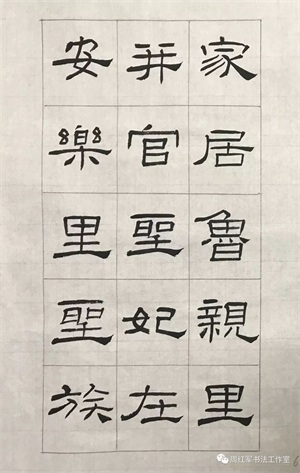 家居魯親里
并官聖妃在
安樂里聖族
周红军书法工作室